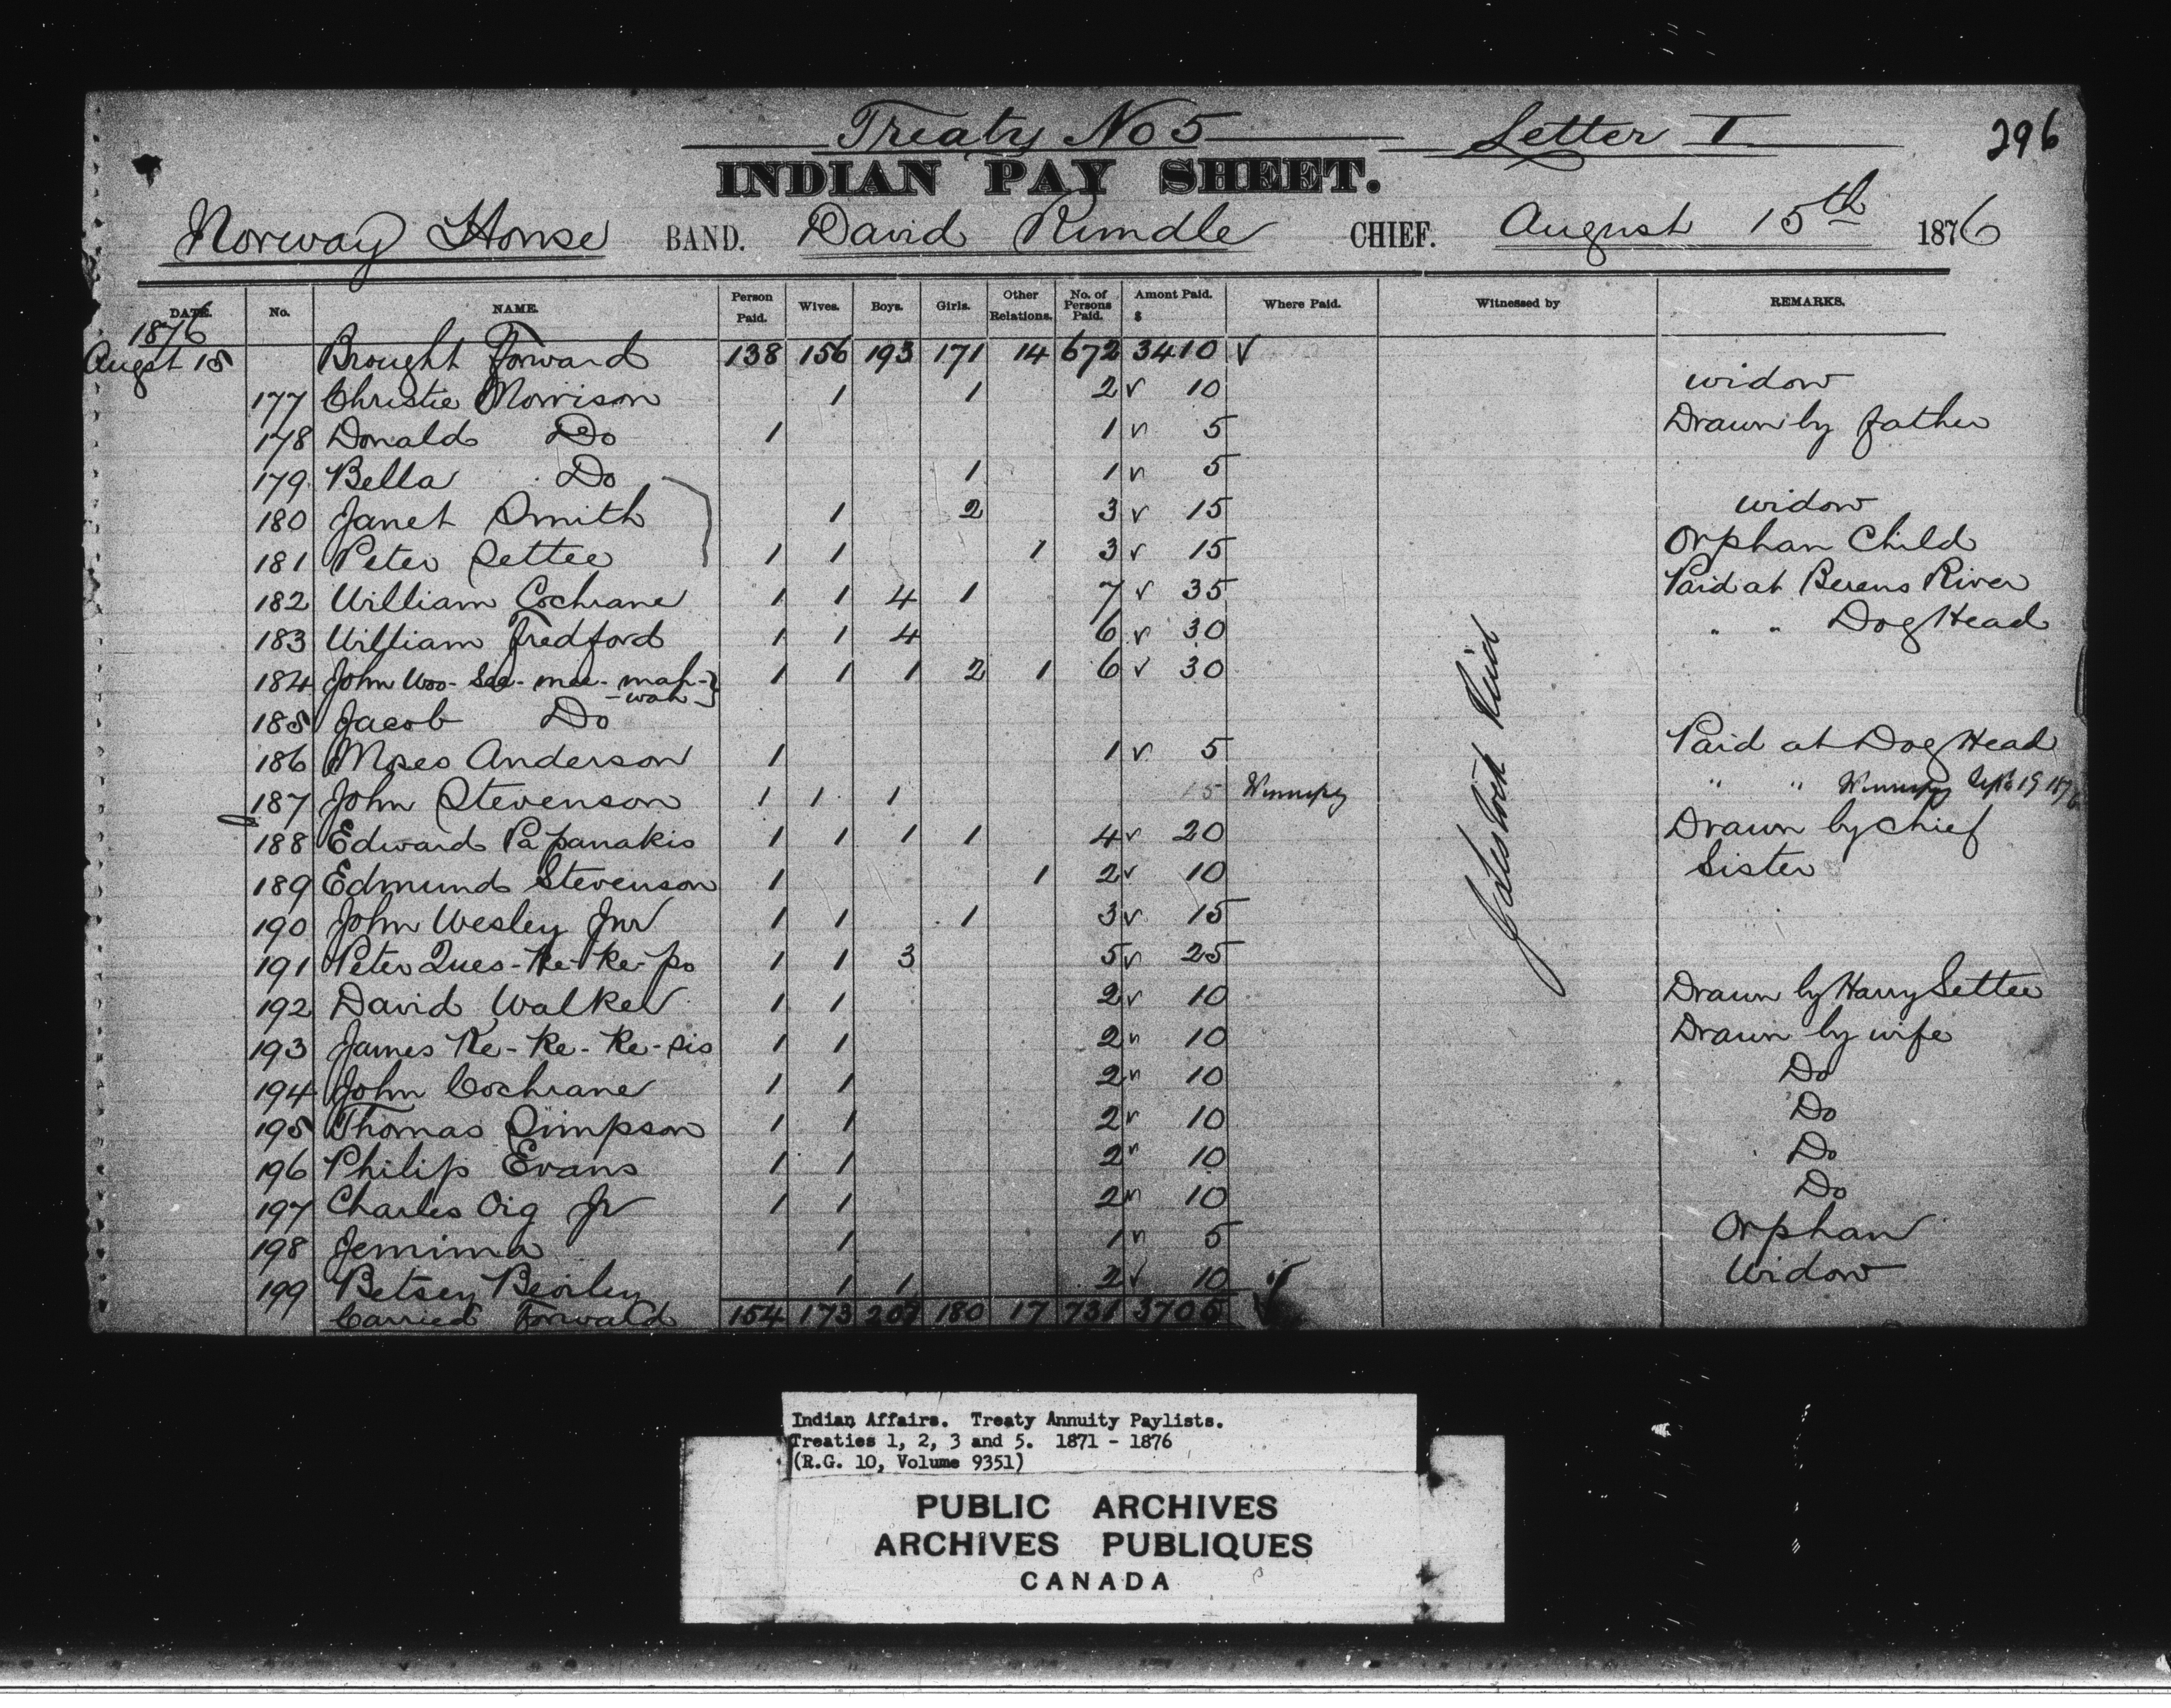 Treaty No 5 Letter I 296
INDIAN PAY SHEET.
Norway House BAND. David Rundle CHIEF. August 15th 1876
DATE. No. NAME. Person Paid. Wives. Boys. Girls. Other Relations. No. of Persons Paid. Amont Paid. $ Where Paid. Witnessed by REMARKS.
1876
Augst 15 Brought Forward 138 156 193 171 14 672 3410 ✓
177 Christie Morrison 1 1 2 ✓ 10 widow
178 Donald Do 1 1 ✓ 5 Drawn by father
179 Bella Do 1 1 ✓ 5
180 Janet Smith 1 2 3 ✓ 15 widow
181 Peter Settee 1 1 1 3 ✓ 15 Orphan Child
182 William Cochrane 1 1 4 1 7 ✓ 35 Paid at Berens River
183 William Fredford 1 1 4 6 ✓ 30 " " Dog Head
184 John Woo-see-mee-mah- 1 1 1 2 1 6 ✓ 30
-wah
185 Jacob Do
186 Moses Anderson 1 1 ✓ 5 Paid at Dog Head
187 John Stevenson 1 1 1 15 Winnipg " " Winnipg Sept 19 1876
188 Edward Papanakis 1 1 1 1 4 ✓ 20 Drawn by chief
189 Edmund Stevenson 1 1 2 ✓ 10 Sister
190 John Wesley Jnr 1 1 1 3 ✓ 15
191 Peter Ques-Ke-Ke-po 1 1 3 5 ✓ 25
192 David Walker 1 1 2 ✓ 10 Drawn by Harry Settee
193 James Ke-Ke-Ke-sis 1 1 2 ✓ 10 Drawn by wife
194 John Cochrane 1 1 2 ✓ 10 Do
195 Thomas Simpson 1 1 2 ✓ 10 Do
196 Philip Evans 1 1 2 ✓ 10 Do
197 Charles Oig Jr 1 1 2 ✓ 10 Do
198 Jemima 1 1 ✓ 5 Orphan
199 Betsey 1 1 2 ✓ 10 Widow
Carried Forward 154 173 207 180 17 731 3705
Indian Affairs. Treaty Annuity Paylists.
Treaties 1, 2, 3 and 5. 1871 - 1876
(R.G. 10, Volume 9351)
PUBLIC ARCHIVES
ARCHIVES PUBLIQUES
CANADA